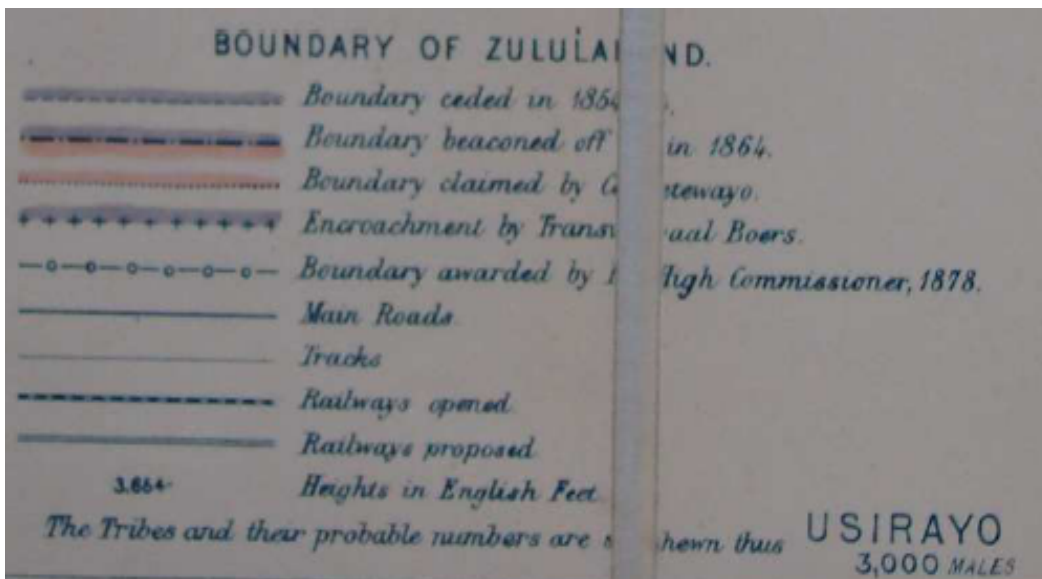 BOUNDARY OF ZULULAND.
Boundary ceded in 1854
Boundary beaconed off in 1864.
Boundary claimed by Cetewayo.
Encroachment by Transvaal Boers.
Boundary awarded by High Commissioner, 1878.
Main Roads.
Tracks
Railways opened.
Railways proposed.
3.664 Heights in English Feet.
The Tribes and their probable numbers are shewn thus USIRAYO
3,000 MALES